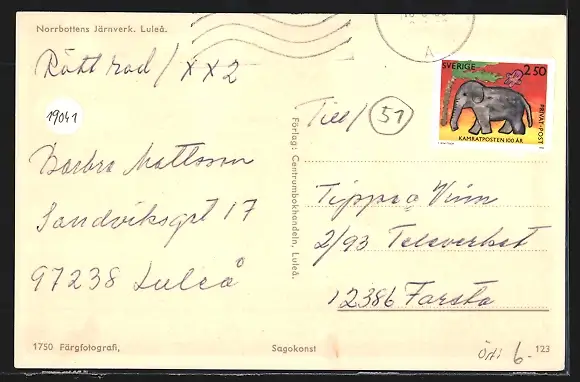 Norrbottens Järnverk. Luleå.
Rätt rad / XX2
19041
Barbro Mattsson
Sandviksgt 17
97238 Luleå
1750 Färgfotografi,
Sagokonst
Förlag: Centrumbokhandeln, Luleå.
A
SVERIGE 2 50
PRIVAT-POST
KAMRATPOSTEN 100 ÅR
Till/ 51
Tippa o Vinn
2/93 Televerket
12386 Farsta
6-
123